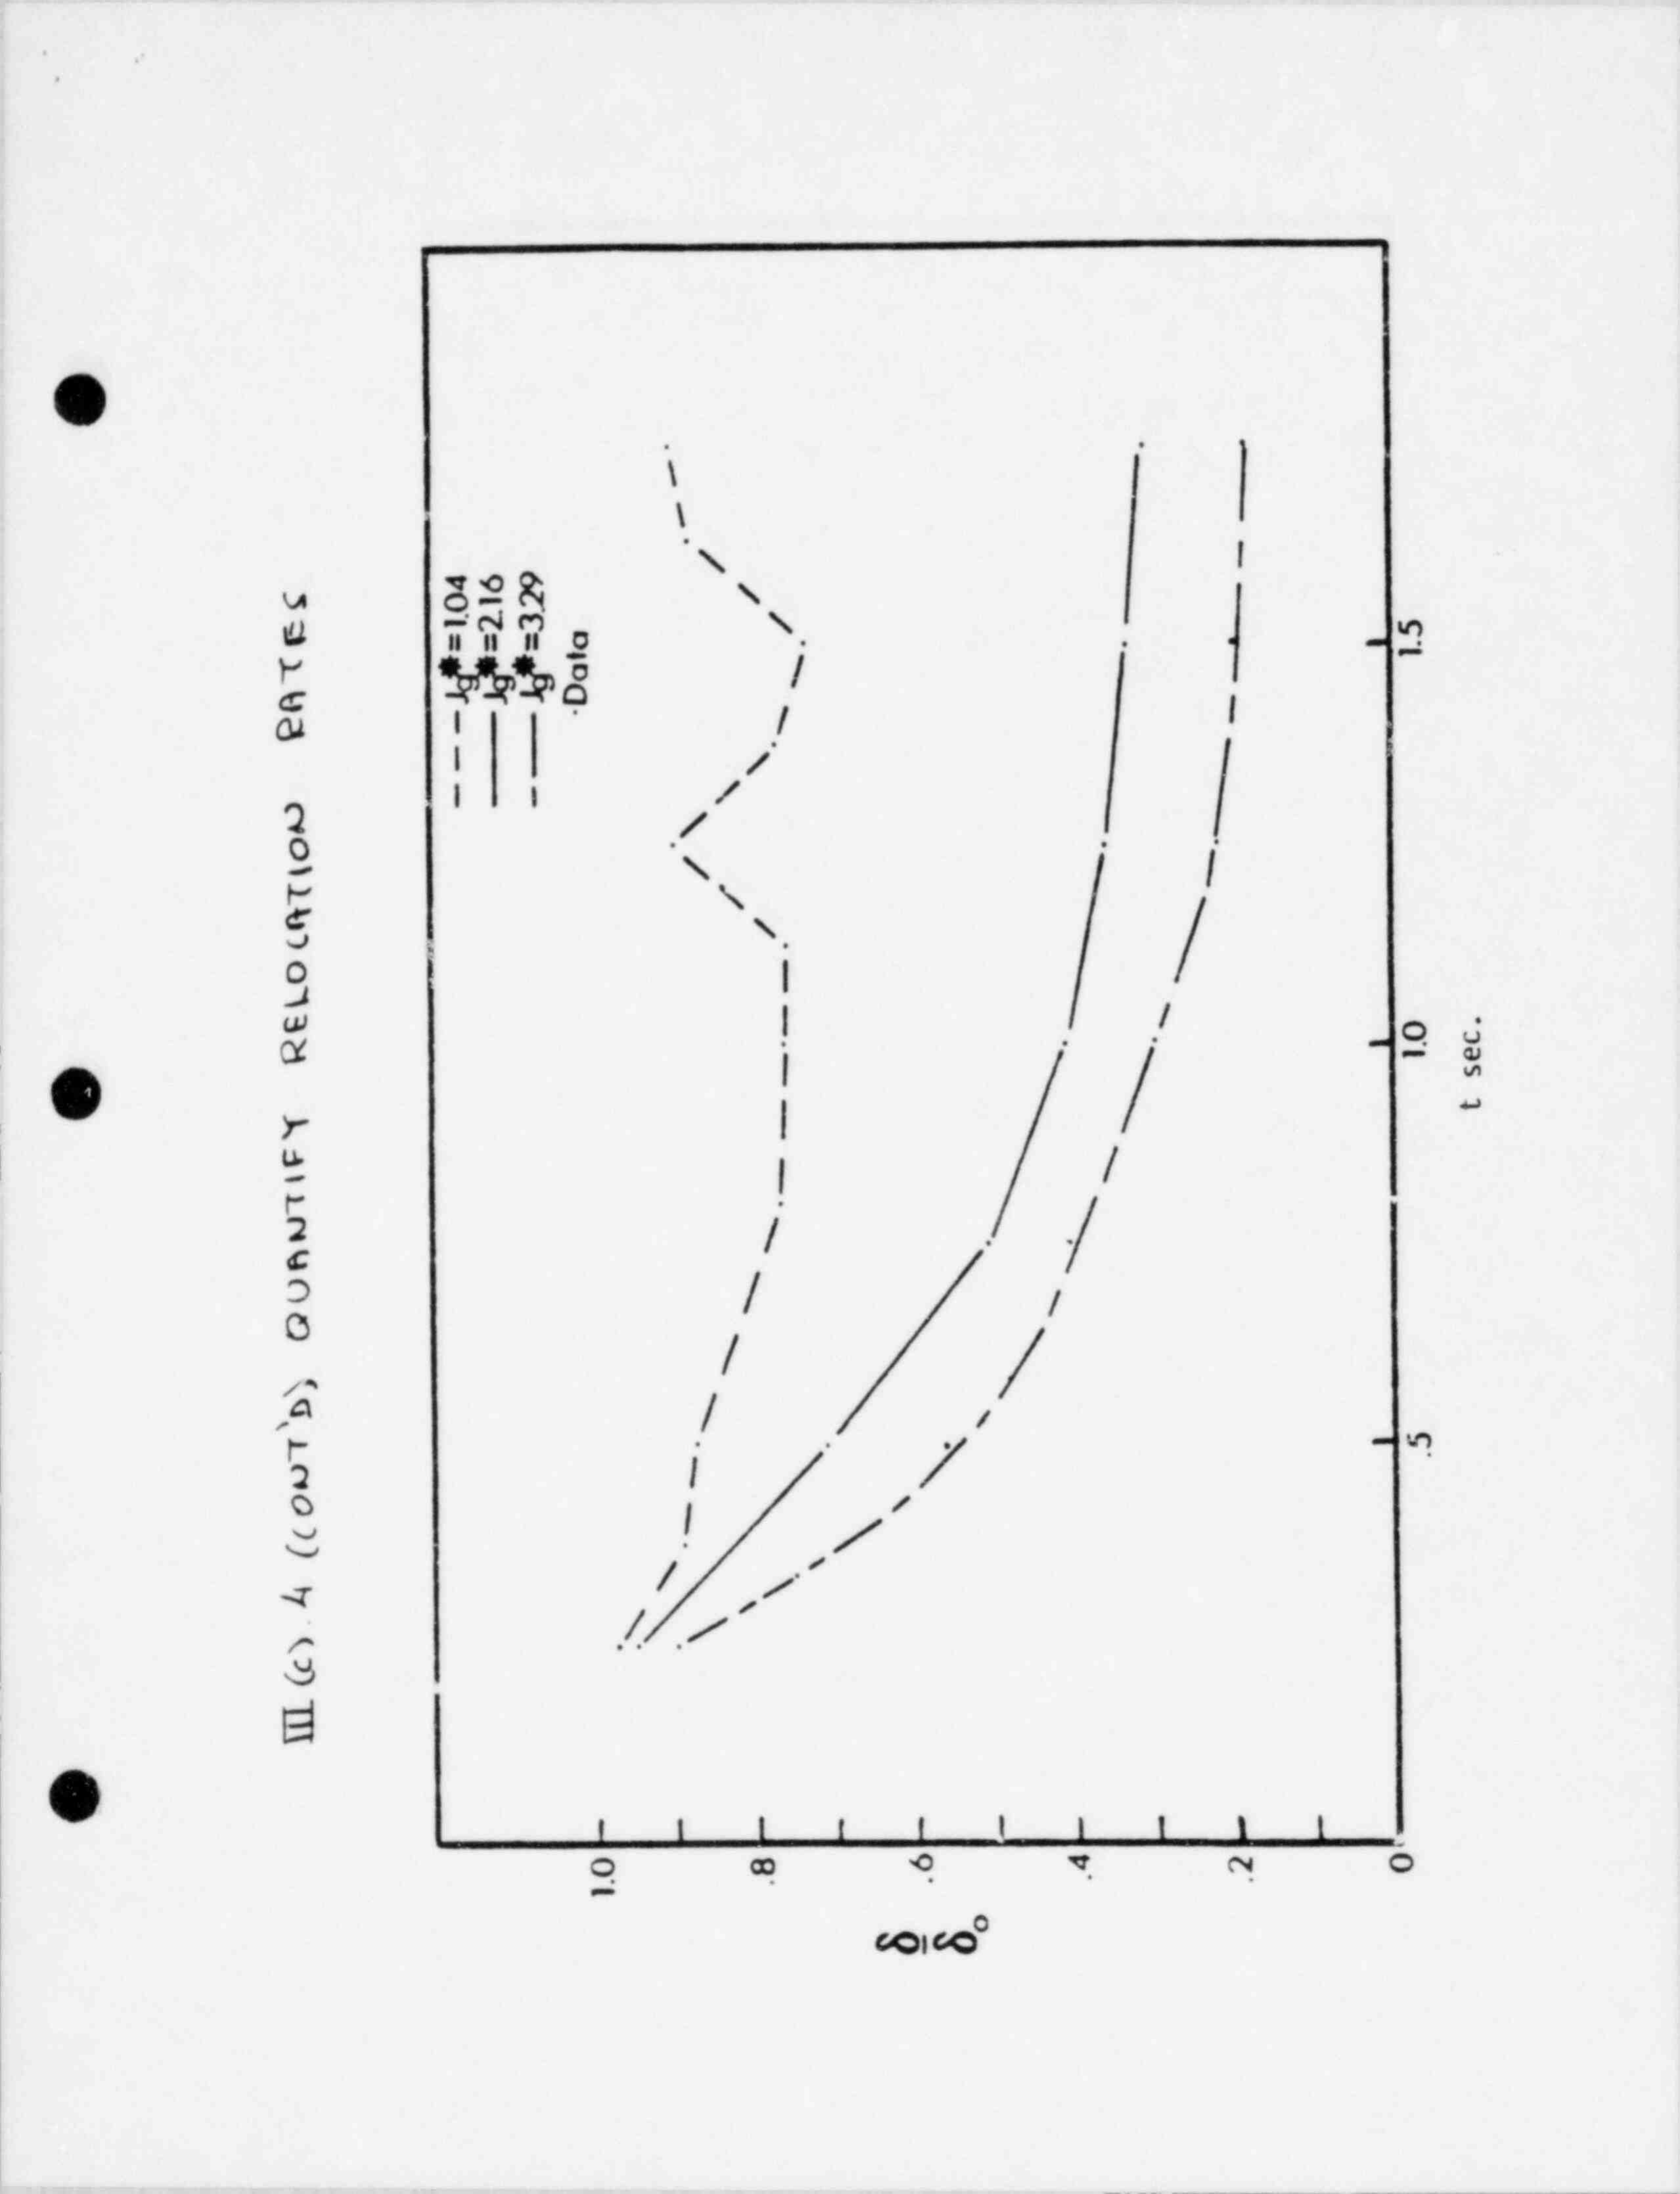 III (c). 4 (CONT'D) QUANTIFY RELOCATION RATES
Jg*=1.04
Jg*=2.16
Jg*=3.29
·Data
1.0
.8
.6
.4
.2
0
δ
δo
.5
1.0
1.5
t sec.